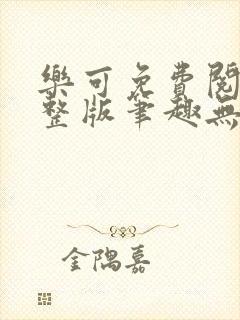 樂可免費閱
整版筆趣無
金隅嘉